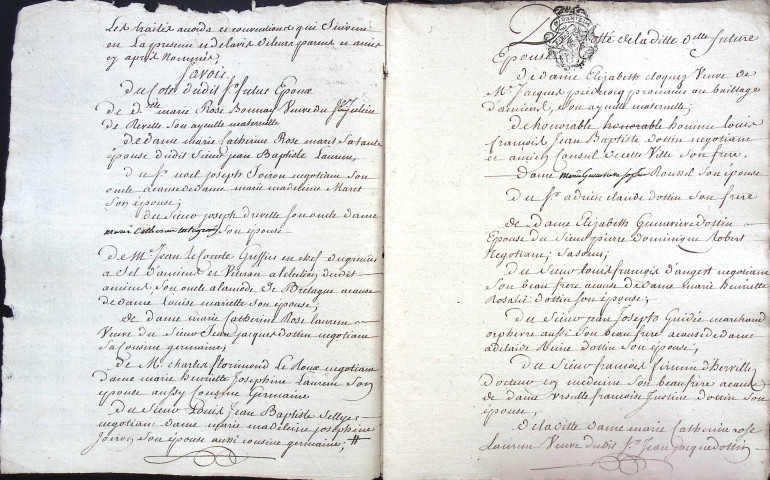 Les traités accords et conventions qui Suivent
en La presence et de lavis de leurs parens et amies
cy après Nommés,
Savoir
Du Coté dudit Sr. futur Epoux
De d. lle marie Rose Bonnay Veuve du Sr. Julien
de Revelle Son ayeulle maternelle
de dame marie Catherine Rose mares Sa tante
épouse dudit Sieur jean Baptiste Laurent,
du Sr. noel joseph Soiron negotiant Son
oncle acause de dame marie madeleine Maret
Son épouse;
du Sieur joseph drevelle Son oncle dame
marie Catherine Son épouse
De Mr. Jean Le Comte Greffier en chef du grenier
a Sel d'amiens et Vétéran a lelection dudit
amiens, Son oncle alamode de Bretagne acause
de dame Louise mariette Son épouse;
de dame marie Catherine Rose Laurent
Veuve du Sieur Jean jacques dottin negotiant
Sa cousine germaine;
de Mr. charles florimond Le Roux negotiant
Dame marie henriette Josephine Laurent Son
épouse aussy Cousine Germaine
Du Sieur Louis Jean Baptiste Sellyer
negotiant dame marie madeleine josephine
Soiron Son épouse aussi cousine germaine; #
Du Coté de laditte Dlle future
Epouse
De dame Elizabeth cloquez Veuve de
Me. Jacques procureur au bailliage
d'amiens, Son ayeule maternelle;
de honorable honorable homme Louis
françois Jean Baptiste Dottin negotiant
et ancien Consul de cette Ville Son frere,
Dame marie Genevieve Roussel Son épouse
Du Sr. adrien claude dottin Son frere
de Dame Elizabeth Genevieve dottin
Epouse du Sieur pierre Dominique Robert
Negotiant; Sa Soeur;
du Sieur Louis françois d'angest negotiant
Son beau frere acause de dame marie henriette
Rosalie Dottin Son épouse;
du Sieur jean joseph Guidée marchand
orphevre aussi Son beau frere acause de dame
adelaide Reine dottin Son épouse;
du Sieur françois firmin d'hervillé
Docteur en medecine Son beau frere acause
de dame Ursulle françoise Justine dottin Son
épouse;
de laditte dame marie Catherine rose
Laurent Veuve dudit Sr. Jean Jacque dottin